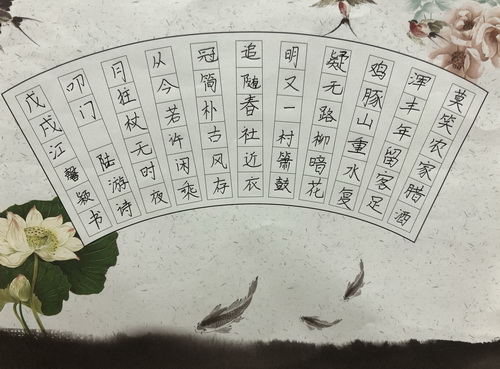 莫笑农家腊酒
浑丰年留客足
鸡豚山重水复
疑无路柳暗花
明又一村箫鼓
追随春社近衣
冠简朴古风存
从今若许闲乘
月拄杖无时夜
叩门 陆游诗
戊戌江 馨颖书